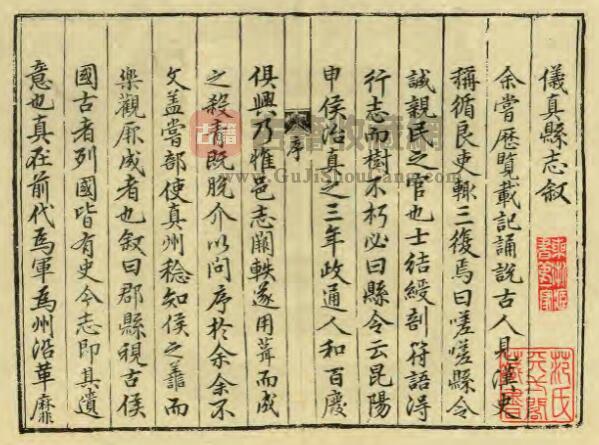 儀真縣志叙
余嘗歷覽載記誦說古人見漢史
稱循良吏輒三復焉曰嗟嗟縣令
誠親民之官也士結綬剖符語淂
行志而樹不朽必曰縣令云昆陽
申侯治真之三年政通人和百廢
俱興乃惟邑志闕軼遂用葺而成
序
之殺青既脫介以問序於余余不
文盖嘗部使真州稔知侯之而
樂觀厥成者也叙曰郡縣視古侯
國古者列國皆有史今志即其遺
意也真在前代為軍為州沿革靡
范氏天一閣藏書
古籍收藏網
www.GuJiShouCang.com